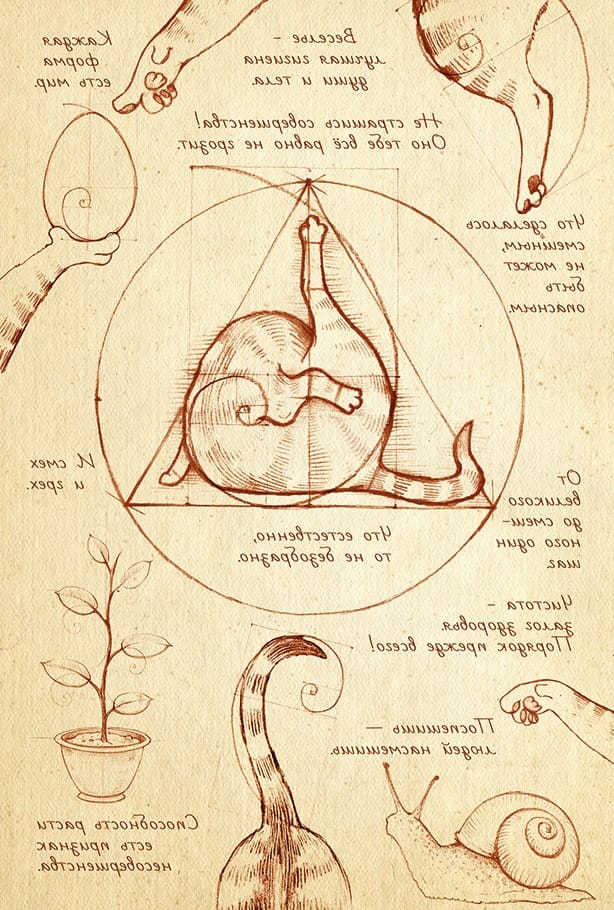 Каждая
форма
есть мир.
Веселье –
лучшая гигиена
души и тела.
Не страшись совершенства!
Оно тебе всё равно не грозит.
Что сделалось
смешным,
не может
быть
опасным.
И смех
и грех.
От
великого
до смеш-
ного один
шаг.
Что естественно,
то не безобразно.
Чистота –
залог здоровья.
Порядок прежде всего!
Поспешишь —
людей насмешишь.
Способность расти
есть признак
несовершенства.